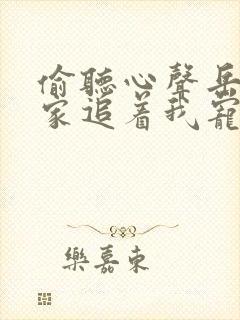 偷聽心聲岳
家追着我寵
樂嘉東